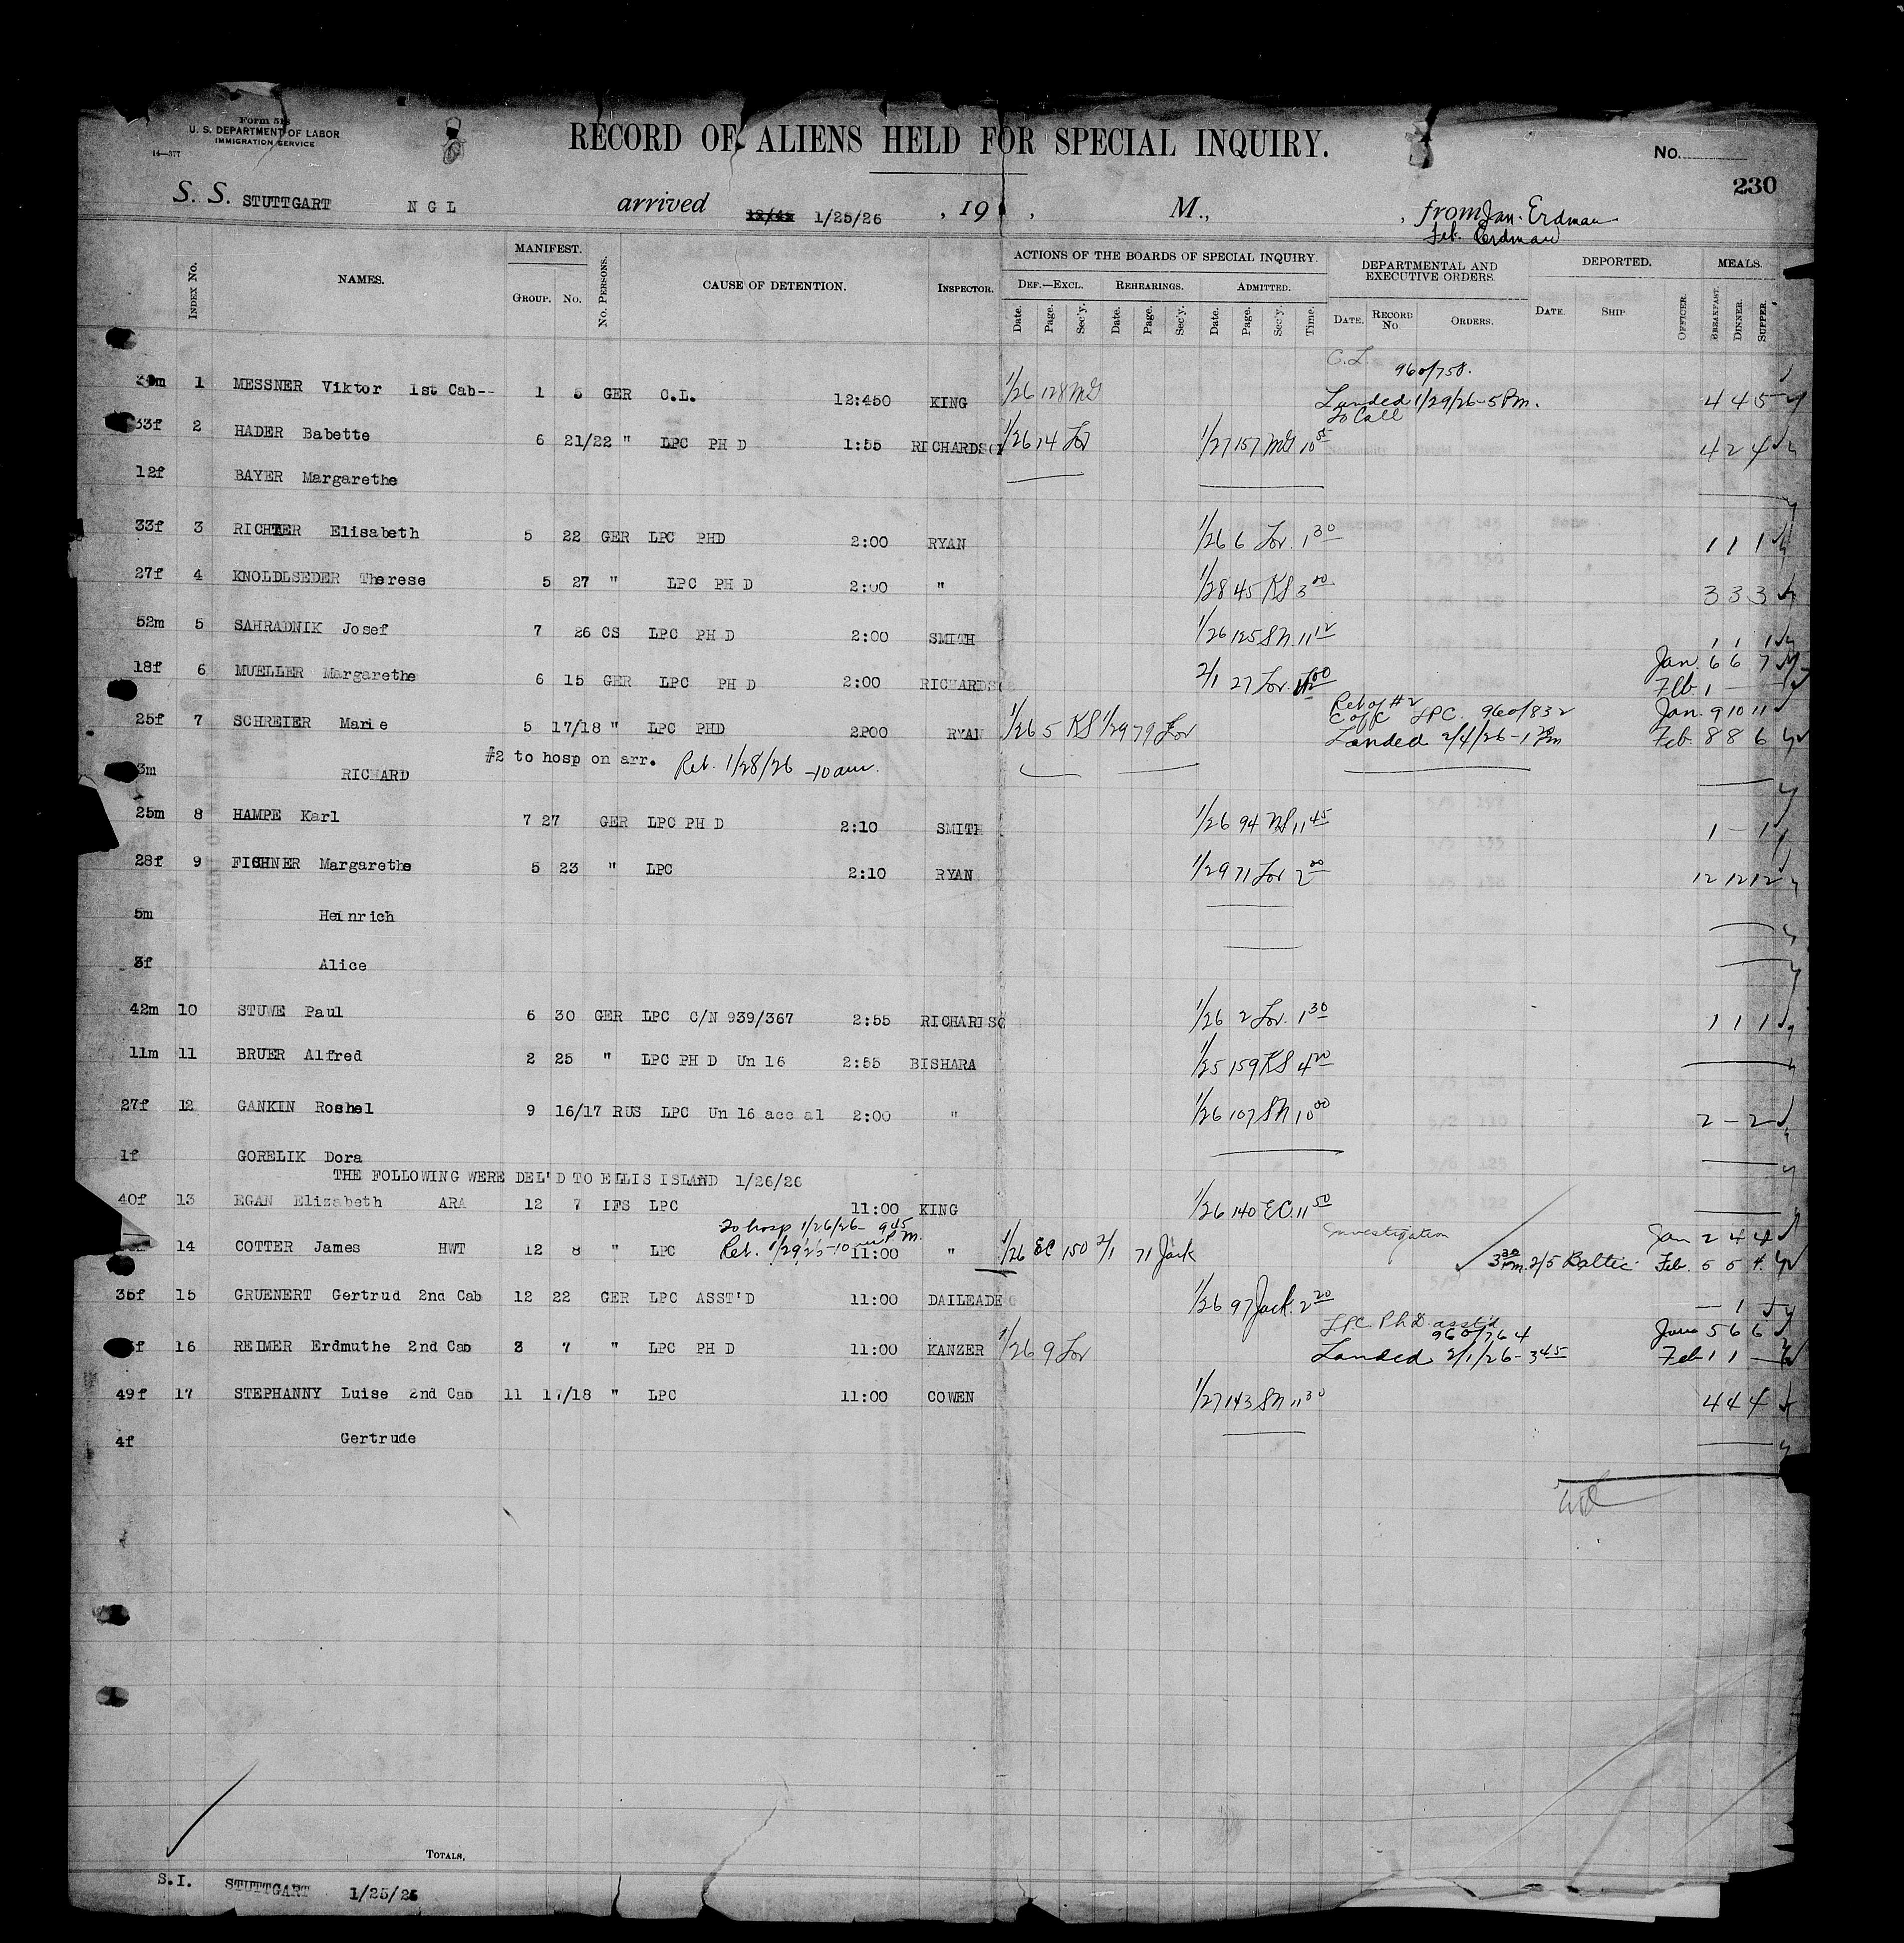 Form 518
U. S. DEPARTMENT OF LABOR
IMMIGRATION SERVICE
14—377
RECORD OF ALIENS HELD FOR SPECIAL INQUIRY.
No.
230
S. S. STUTTGART N G L arrived 1/25/26 , 19 , M., , from Jan. Erdman
Feb. Erdman
INDEX No. NAMES. MANIFEST. GROUP. No. No. PERSONS. CAUSE OF DETENTION. INSPECTOR. ACTIONS OF THE BOARDS OF SPECIAL INQUIRY. DEF.—EXCL. REHEARINGS. ADMITTED. DEPARTMENTAL AND EXECUTIVE ORDERS. DEPORTED. MEALS.
Date. Page. Sec'y. Date. Page. Sec'y. Date. Page. Sec'y. Time. DATE. RECORD No. ORDERS. DATE. SHIP. OFFICER. BREAKFAST. DINNER. SUPPER.
C.L. 960/758.
1 MESSNER Viktor 1st Cab-- 1 5 GER C.L. 12:450 KING 1/26 128 McG Landed 1/29/26-5 Pm. 4 4 5
To Call
33f 2 HADER Babette 6 21/22 " LPC PH D 1:55 RICHARDSO 1/26 14 Lor 1/27 157 McG 10 55 4 2 4
12f BAYER Margarethe
33f 3 RICHTER Elisabeth 5 22 GER LPC PHD 2:00 RYAN 1/26 6 Lor. 1 30 1 1 1
27f 4 KNOLDLSEDER Therese 5 27 " LPC PH D 2:00 " 1/28 45 KS 3 00 3 3 3
52m 5 SAHRADNIK Josef 7 26 CS LPC PH D 2:00 SMITH 1/26 125 SN 11 12 1 1 1
18f 6 MUELLER Margarethe 6 15 GER LPC PH D 2:00 RICHARDS 2/1 27 Lor. Jan. 6 6 7
Feb. 1 — —
Ret of #2
C of C LPC. 960/832
25f 7 SCHREIER Marie 5 17/18 " LPC PHD 2P00 RYAN 1/26 5 KS 1/29 79 Lor Landed 2/4/26-1 Pm Jan. 9 10 11
Feb. 8 8 6
#2 to hosp on arr. Ret. 1/28/26 -10 am.
3m RICHARD
25m 8 HAMPE Karl 7 27 GER LPC PH D 2:10 SMITH 1/26 94 NS 11 45 1 - 1
28f 9 FISHNER Margarethe 5 23 " LPC 2:10 RYAN 1/29 71 Lor 2 00 12 12 12
5m Heinrich
3f Alice
42m 10 STUWE Paul 6 30 GER LPC C/N 939/367 2:55 RICHARDSO 1/26 2 Lor. 1 30 1 1 1
11m 11 BRUER Alfred 2 25 " LPC PH D Un 16 2:55 BISHARA 1/25 159 KS 4 20
27f 12 GANKIN Roshel 9 16/17 RUS LPC Un 16 acc al 2:00 " 1/26 107 SN 10 00 2 - 2
1f GORELIK Dora
THE FOLLOWING WERE DEL'D TO ELLIS ISLAND 1/26/26
40f 13 EGAN Elizabeth ARA 12 7 IFS LPC 11:00 KING 1/26 140 EC 11 50
To hosp 1/26/26- 9 45 P.M.
Ret. 1/29/26-10 am
Investigation
14 COTTER James HWT 12 8 " LPC 11:00 " 1/26 EC 150 2/1 71 Jack 3 30 Pm. 2/5 Baltic Jan 2 4 4
Feb. 5 5 4
35f 15 GRUENERT Gertrud 2nd Cab 12 22 GER LPC ASST'D 11:00 DAILEADE 1/26 97 Jack. 2 20 — 1 —
LPC. Ph.D. asst'd
960/764
16 REIMER Erdmuthe 2nd Cab 3 7 " LPC PH D 11:00 KANZER 1/26 9 Lor Landed 2/1/26-3 45 Jan 5 6 6
Feb 1 1 —
49f 17 STEPHANNY Luise 2nd Cab 11 17/18 " LPC 11:00 COWEN 1/27 143 SN 11 30 4 4 4
4f Gertrude
TOTALS,
S.I. STUTTGART 1/25/26